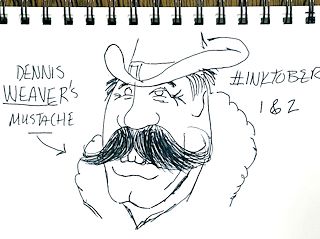 DENNIS
WEAVER'S
MUSTACHE
#INKTOBER
1 & 2